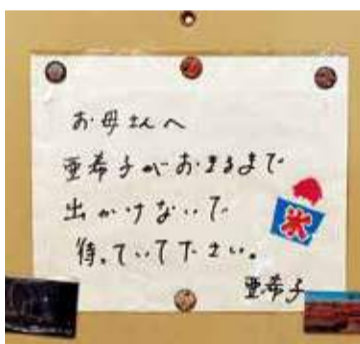 お母さんへ
亜希子がおきるまで
出かけないで
待っていて下さい。
亜希子
氷